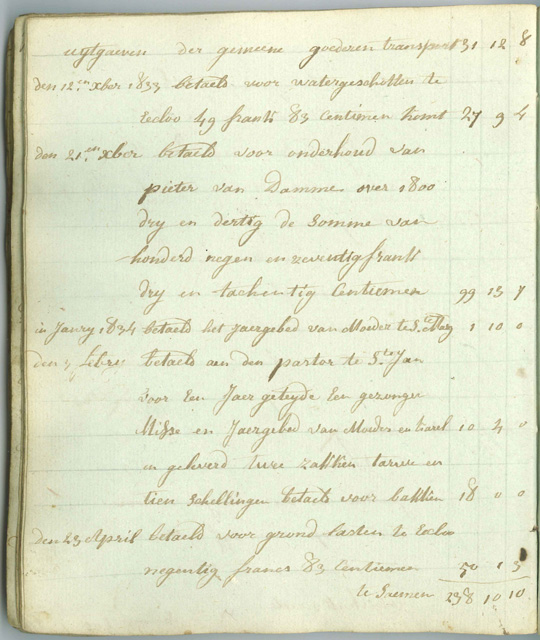 uytgaeven der gemeene goederen transport 31 12 8
den 12.en xber 1833 betaeld voor watergeschotten te
Eecloo 49 franks 83 Centiemen komt 27 9 4
den 21.en xber betaeld voor onderhoud van
pieter van Damme over 1800
dry en dertig de Somme van
honderd negen en zeventig frank
dry en tachentig Centiemen 99 13 7
in Janry 1834 betaeld het jaergebed van Moeder te 1 10 0
den febry betaeld aen den pastor te St Jan
voor Een Jaer getyde Een gezonge
Misse en Jaergebed van Moeder en karel 10 4 0
en gelevert twee zakken tarwe en
tien Schellingen betaeld voor bakken 18 0 0
den 23 April betaeld voor grond lasten te Eecloo
negentig francs 83 Centiemen 50 1 3
te Saemen 238 10 10